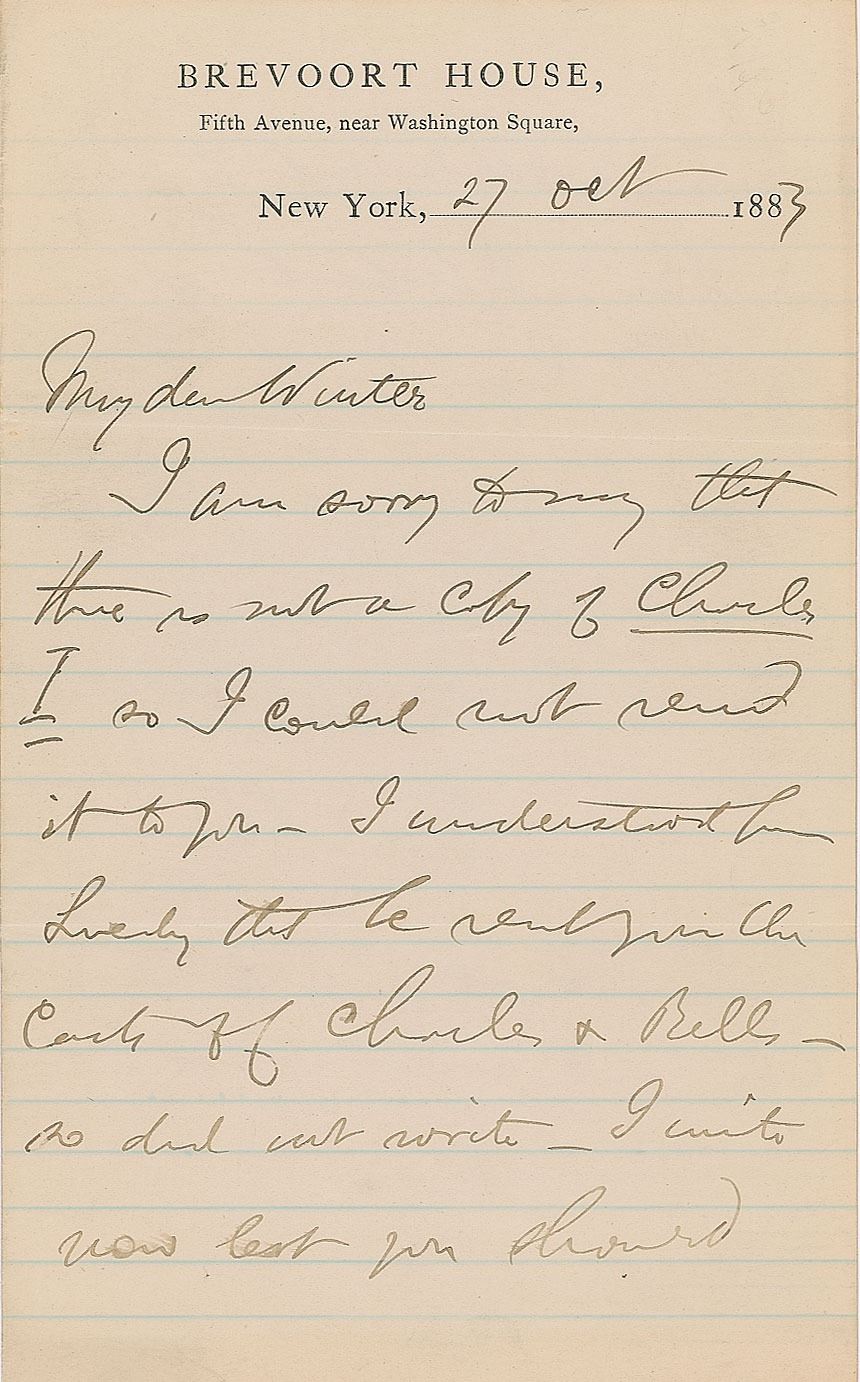 BREVOORT HOUSE,
Fifth Avenue, near Washington Square,
New York, 27 Oct 1883
My dear Winter
I am sorry to say that
there is not a copy of Charles
I so I could not send
it to you – I understood from
that he sent you the
Casts of Charles & Bells –
so did not write – I write
now lest you should